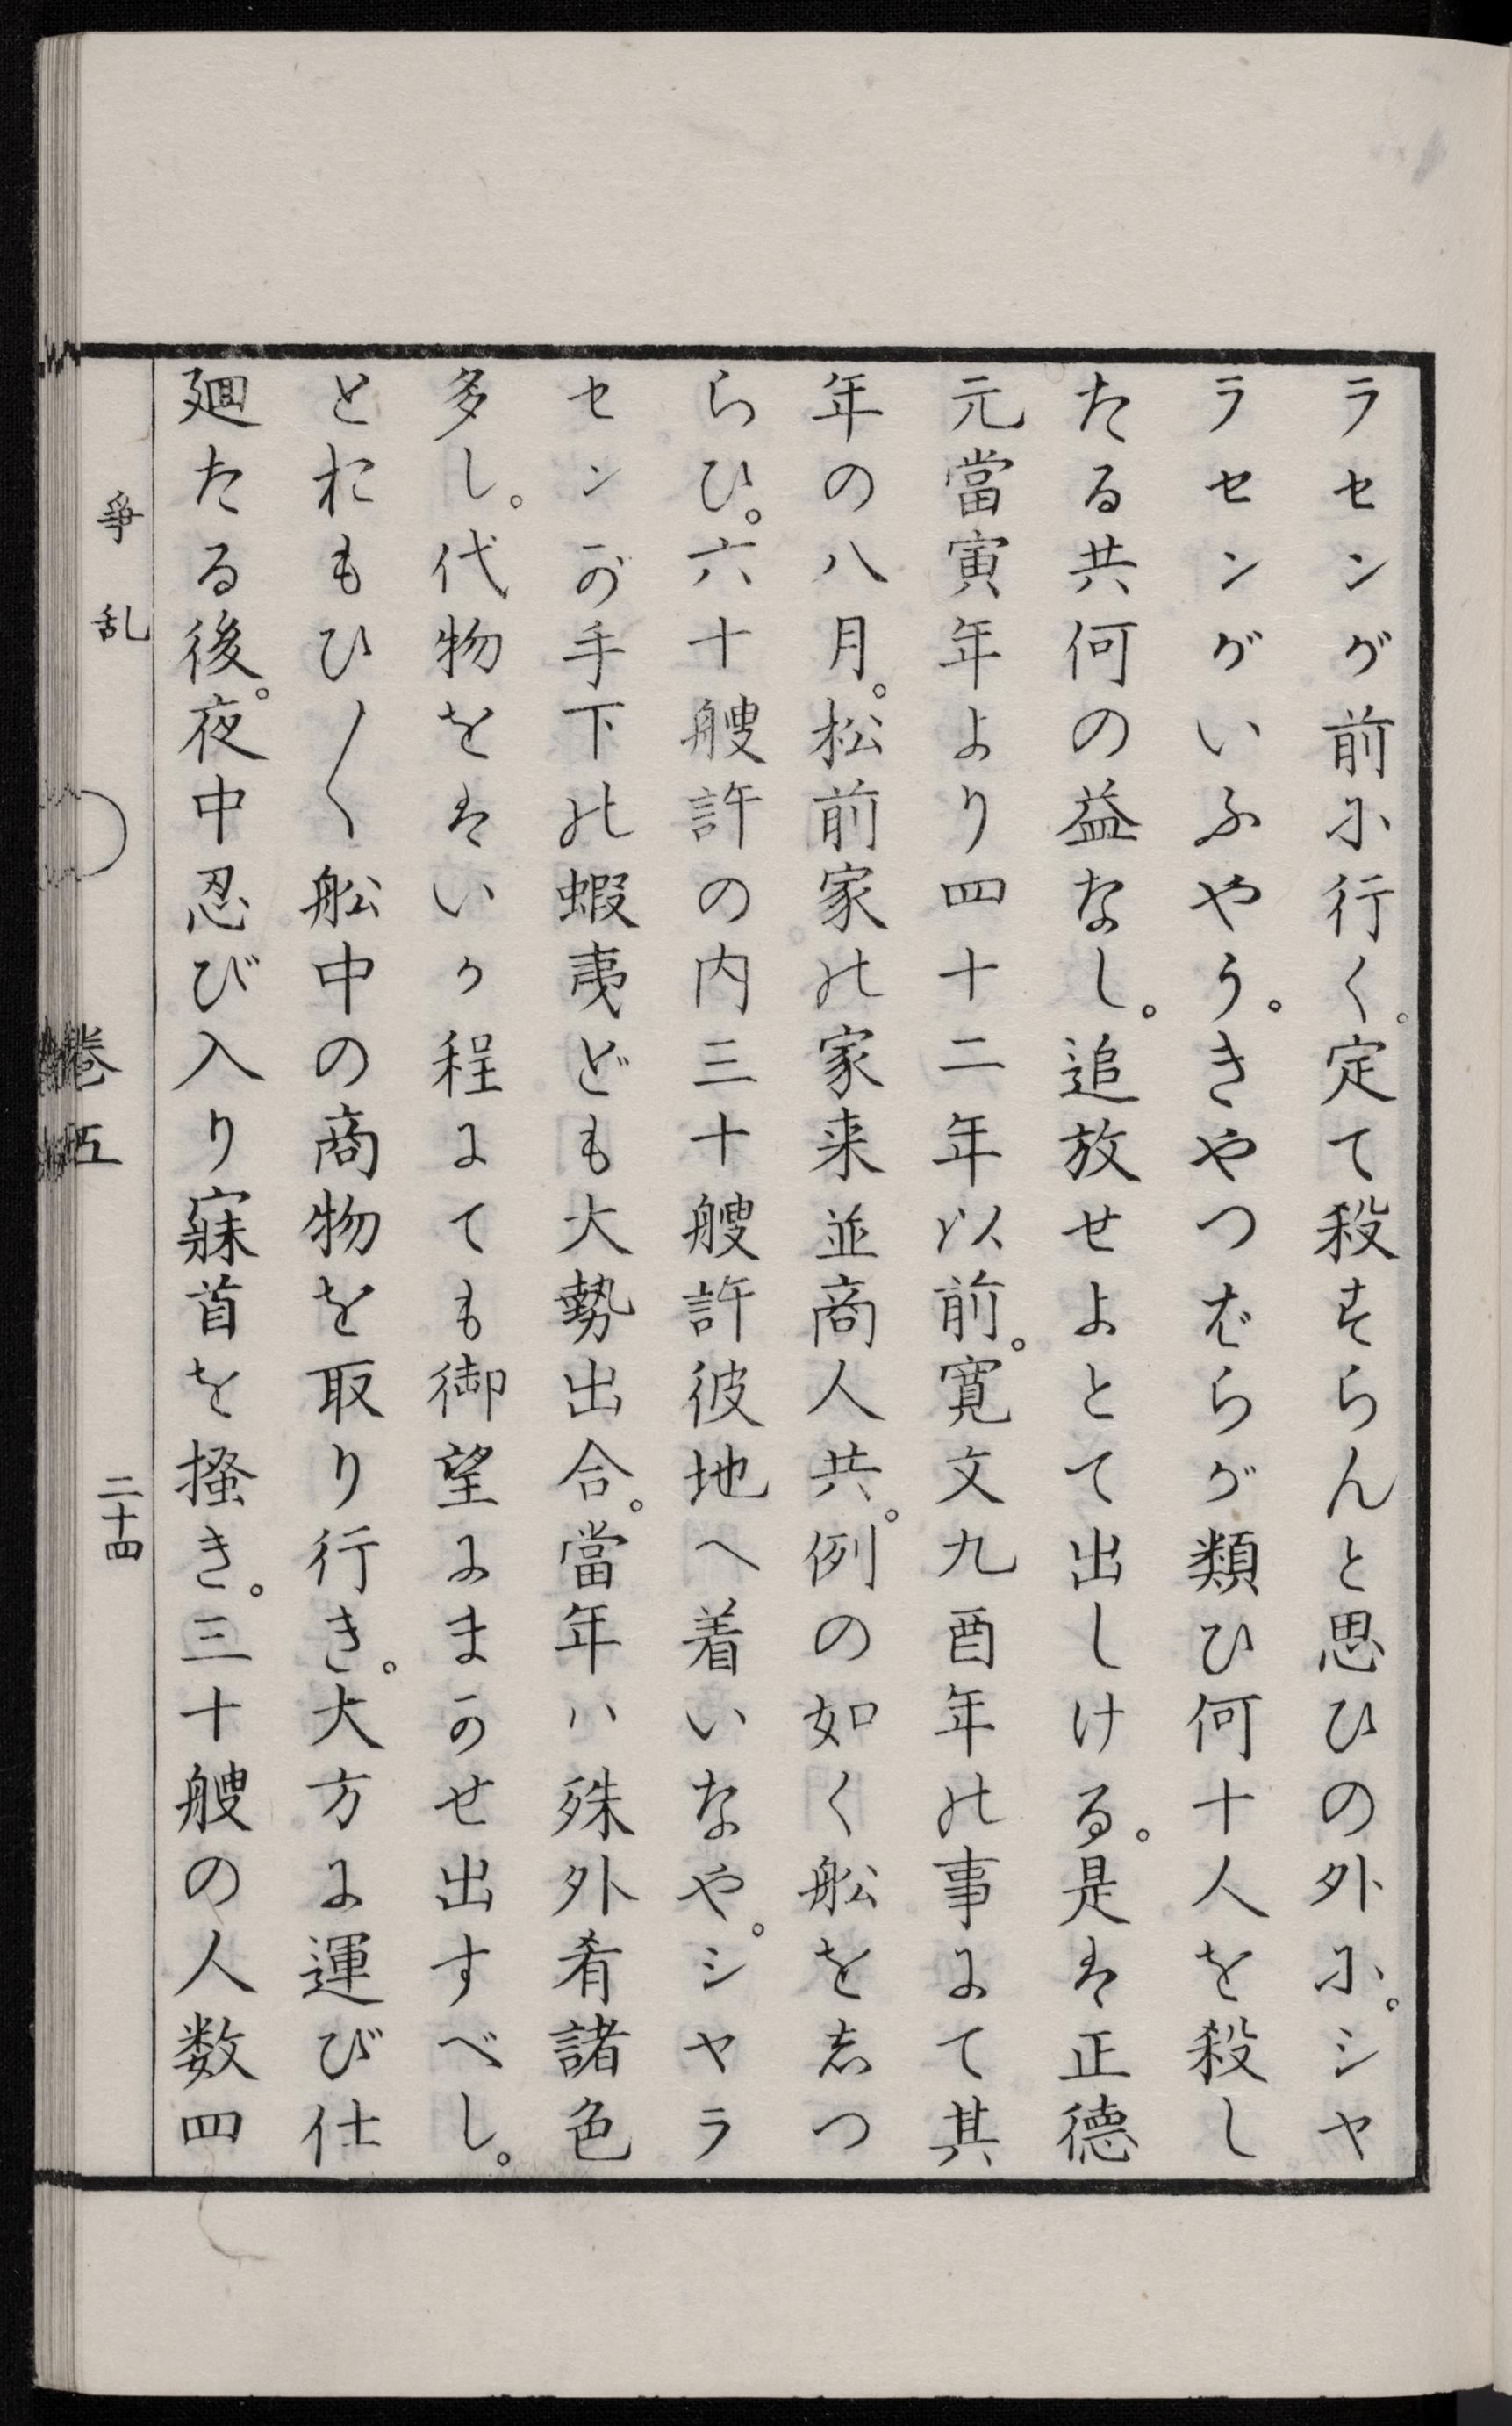 ラセンガ前に行く。定て殺すらんと思ひの外に。シヤ
ラセンガいふやう。きやつばらが類ひ何十人を殺し
たる共何の益なし。追放せよとて出しける。是は正德
元當寅年より四十二年以前。寛文九酉年の事にて其
年の八月。松前家の家来並商人共。例の如く舩をしつ
らひ。六十艘許の内三十艘許彼地へ着いなや。シヤラ
センが手下の蝦夷ども大勢出合。當年ハ殊外肴諸色
多し。代物をはいか程にても御望にまかせ出すべし。
とおもひ〳〵舩中の商物を取り行き。大方に運び仕
廻たる後。夜中忍び入り寐首を搔き。三十艘の人数四
爭乱 卷五 二十四